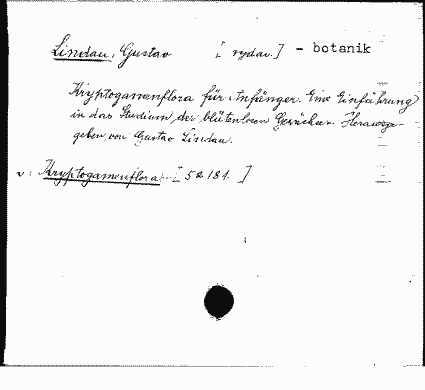 Lindau, Gustav [wydaw.] - botanik
Kryptogamenflora für Anfänger. Eine Einführung
in das Studium der blütenlosen Gewächse. Herausge-
geben von Gustav Lindau.
v: Kryptogamenflora... [52181.]